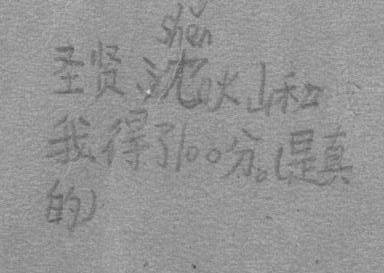 shěn
圣贤沈火山和
我得了100分。(是真
的)